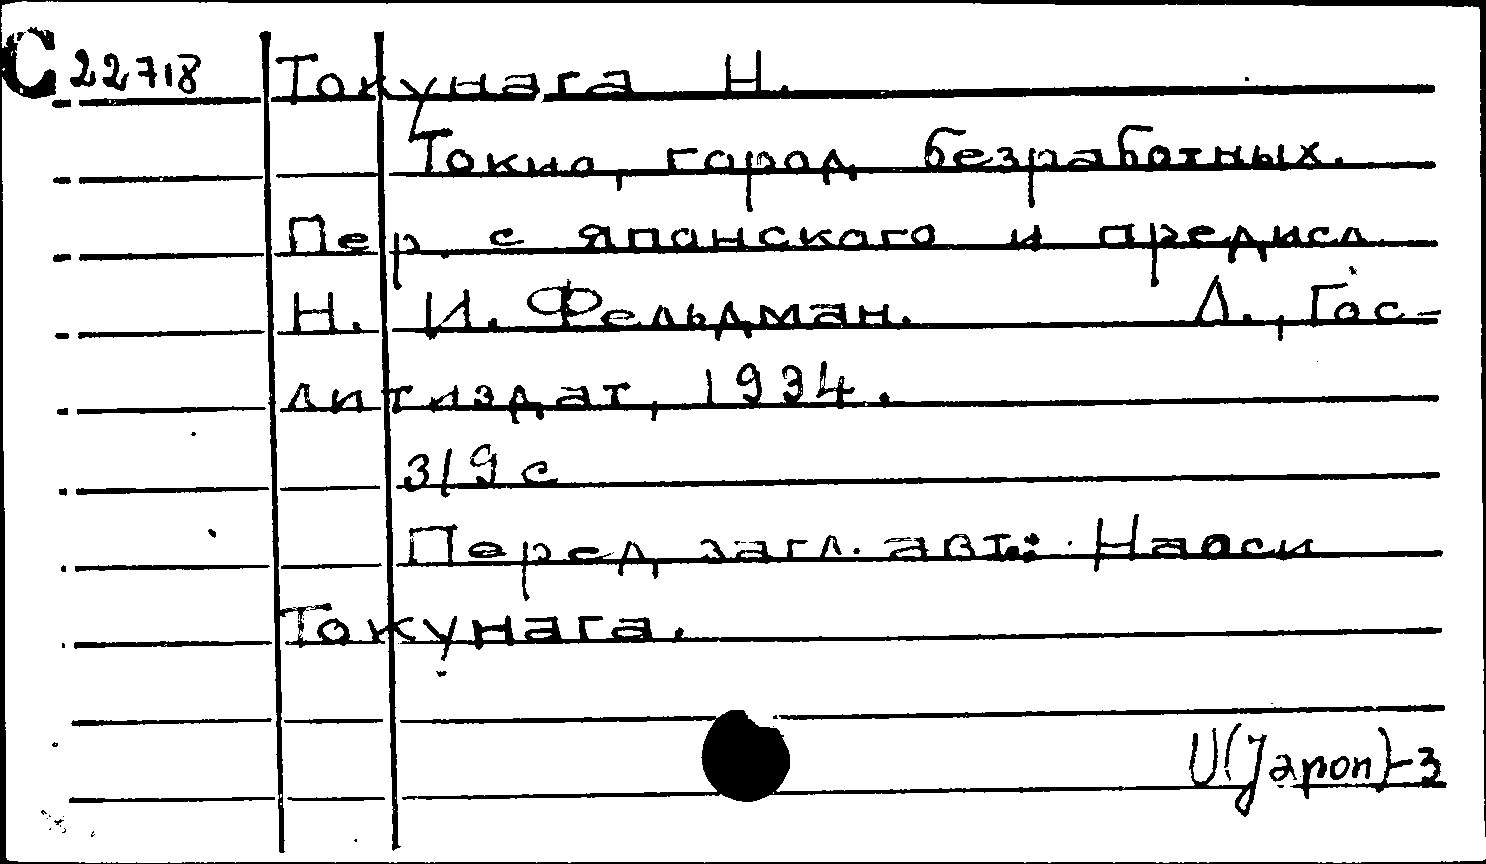 C 22718 Токунага Н.
Токио, город безработных.
Пер. с японского и предисл.
Н. И. Фельдман. Л., Гос-
литиздат, 1934.
319 с
Перед загл. авт.: Наоси
Токунага.
U(Japon)-3